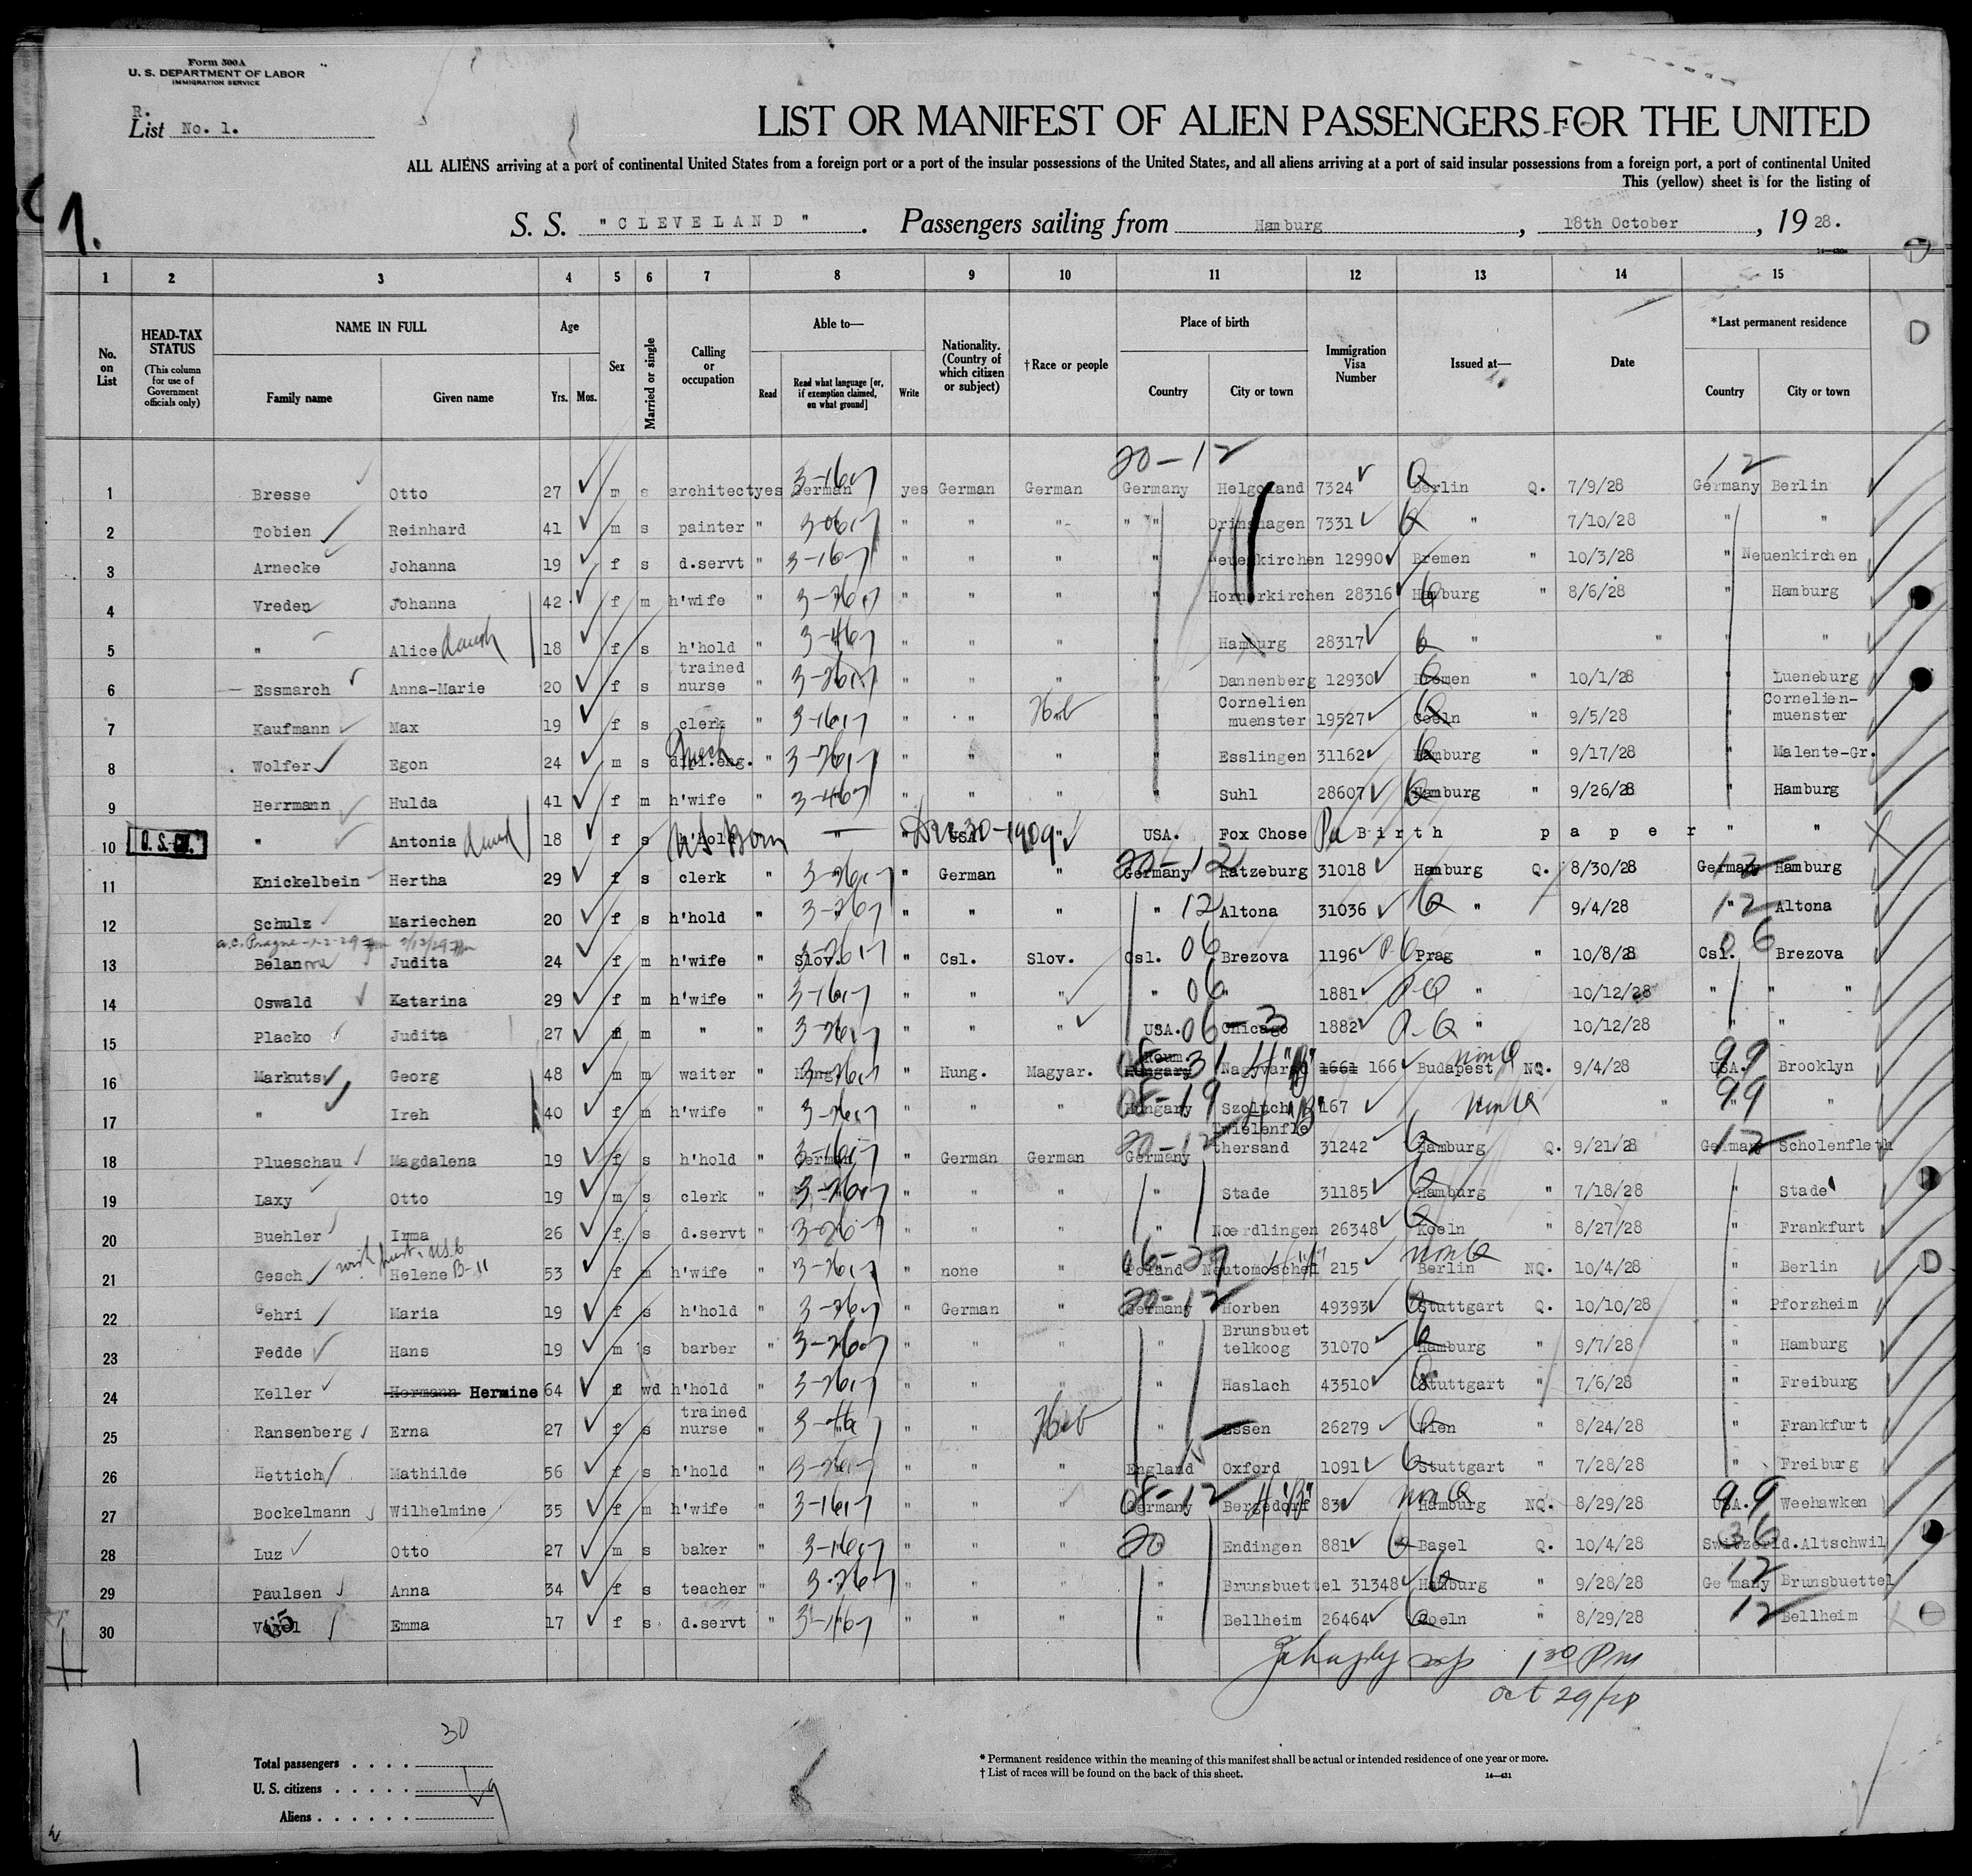 Form 500A
U. S. DEPARTMENT OF LABOR
IMMIGRATION SERVICE
R.
List No. 1.
LIST OR MANIFEST OF ALIEN PASSENGERS FOR THE UNITED
ALL ALIENS arriving at a port of continental United States from a foreign port or a port of the insular possessions of the United States, and all aliens arriving at a port of said insular possessions from a foreign port, a port of continental United
This (yellow) sheet is for the listing of
1.
S. S. "CLEVELAND". Passengers sailing from Hamburg, 18th October, 1928.
1 2 3 4 5 6 7 8 9 10 11 12 13 14 15
No. on List
HEAD-TAX STATUS (This column for use of Government officials only)
NAME IN FULL Family name Given name
Age Yrs. Mos.
Sex
Married or single
Calling or occupation
Able to— Read Read what language [or, if exemption claimed, on what ground] Write
Nationality. (Country of which citizen or subject)
†Race or people
Place of birth Country City or town
Immigration Visa Number
Issued at—
Date
*Last permanent residence Country City or town
20-12 12
1 Bresse Otto 27 m s architect yes German yes German German Germany Helgoland 7324 Berlin Q. 7/9/28 Germany Berlin
2 Tobien Reinhard 41 m s painter " " " " " 7331 " 7/10/28 " "
3 Arnecke Johanna 19 f s d.servt " " " " " Neuenkirchen 12990 Bremen " 10/3/28 " Neuenkirchen
4 Vreden Johanna 42 f m h'wife " " " " " Hornerkirchen 28316 Hamburg " 8/6/28 " Hamburg
5 " Alice daugh 18 f s h'hold " " " " " Hamburg 28317 " " " "
6 Essmarch Anna-Marie 20 f s trained nurse " " " " " Dannenberg 12930 Bremen " 10/1/28 " Lueneburg
7 Kaufmann Max 19 f s clerk " " " Heb " Cornelien muenster 19527 Coeln " 9/5/28 " Cornelien-muenster
8 Wolfer Egon 24 m s dipl.eng. " " " " " Esslingen 31162 Hamburg " 9/17/28 " Malente-Gr.
9 Herrmann Hulda 41 f m h'wife " " " " " Suhl 28607 Hamburg " 9/26/28 " Hamburg
10 U.S.C. " Antonia daugh 18 f s h'hold US Born " " USA Dec 30-1909 " USA. Fox Chose Pa Birth paper " "
11 Knickelbein Hertha 29 f s clerk " " German " Germany 20-12 Ratzeburg 31018 Hamburg Q. 8/30/28 Germany 12 Hamburg
12 Schulz Mariechen 20 f s h'hold " " " " " 12 Altona 31036 " 9/4/28 " 12 Altona
13 Belan Judita 24 f m h'wife " Slov. " Csl. Slov. Csl. 06 Brezova 1196 Prag " 10/8/28 Csl. 06 Brezova
14 Oswald Katarina 29 f m h'wife " " " " " 06 " 1881 " 10/12/28 " " "
15 Placko Judita 27 f m " " " " " USA. 06-3 Chicago 1882 " 10/12/28 " "
16 Markuts Georg 48 m m waiter " Hung. " Hung. Magyar. Roum. Hungary Nagyvarad 1661 166 Budapest NQ. 9/4/28 USA. 99 Brooklyn
17 " Ireh 40 f m h'wife " " " " Hungary 167 " 99 "
18 Plueschau Magdalena 19 f s h'hold " German " German German Germany 20-12 Twielenfle thersand 31242 Hamburg Q. 9/21/28 Germany 12 Scholenfleth
19 Laxy Otto 19 m s clerk " " " " " Stade 31185 Hamburg " 7/18/28 " Stade
20 Buehler Irma 26 f s d.servt " " " " " Noerdlingen 26348 Koeln " 8/27/28 " Frankfurt
21 Gesch Helene 53 f m h'wife " " none " Poland Neutomoschel 215 Berlin NQ. 10/4/28 " Berlin
22 Gehri Maria 19 f s h'hold " " German " Germany 20-12 Horben 49393 Stuttgart Q. 10/10/28 " Pforzheim
23 Fedde Hans 19 m s barber " " " " " Brunsbuet telkoog 31070 Hamburg " 9/7/28 " Hamburg
24 Keller Hermann Hermine 64 f wd h'hold " " " " " Haslach 43510 Stuttgart " 7/6/28 " Freiburg
25 Ransenberg Erna 27 f s trained nurse " " " Heb " Essen 26279 Wien " 8/24/28 " Frankfurt
26 Hettich Mathilde 56 f s h'hold " " " " England Oxford 1091 Stuttgart " 7/28/28 " Freiburg
27 Bockelmann Wilhelmine 35 f m h'wife " " " " Germany 08-12 Bergedorf 83 Hamburg NQ. 8/29/28 USA. 99 Weehawken
28 Luz Otto 27 m s baker " " " " 20 " Endingen 881 Basel Q. 10/4/28 Switzerld. 36 Altschwil
29 Paulsen Anna 34 f s teacher " " " " " Brunsbuettel 31348 Hamburg " 9/28/28 Germany 12 Brunsbuettel
30 Emma 17 f s d.servt " " " " " Bellheim 26464 Coeln " 8/29/28 12 Bellheim
1 30 PM
Oct 29/28
30
Total passengers
U. S. citizens 1
Aliens
* Permanent residence within the meaning of this manifest shall be actual or intended residence of one year or more.
† List of races will be found on the back of this sheet.
14—431